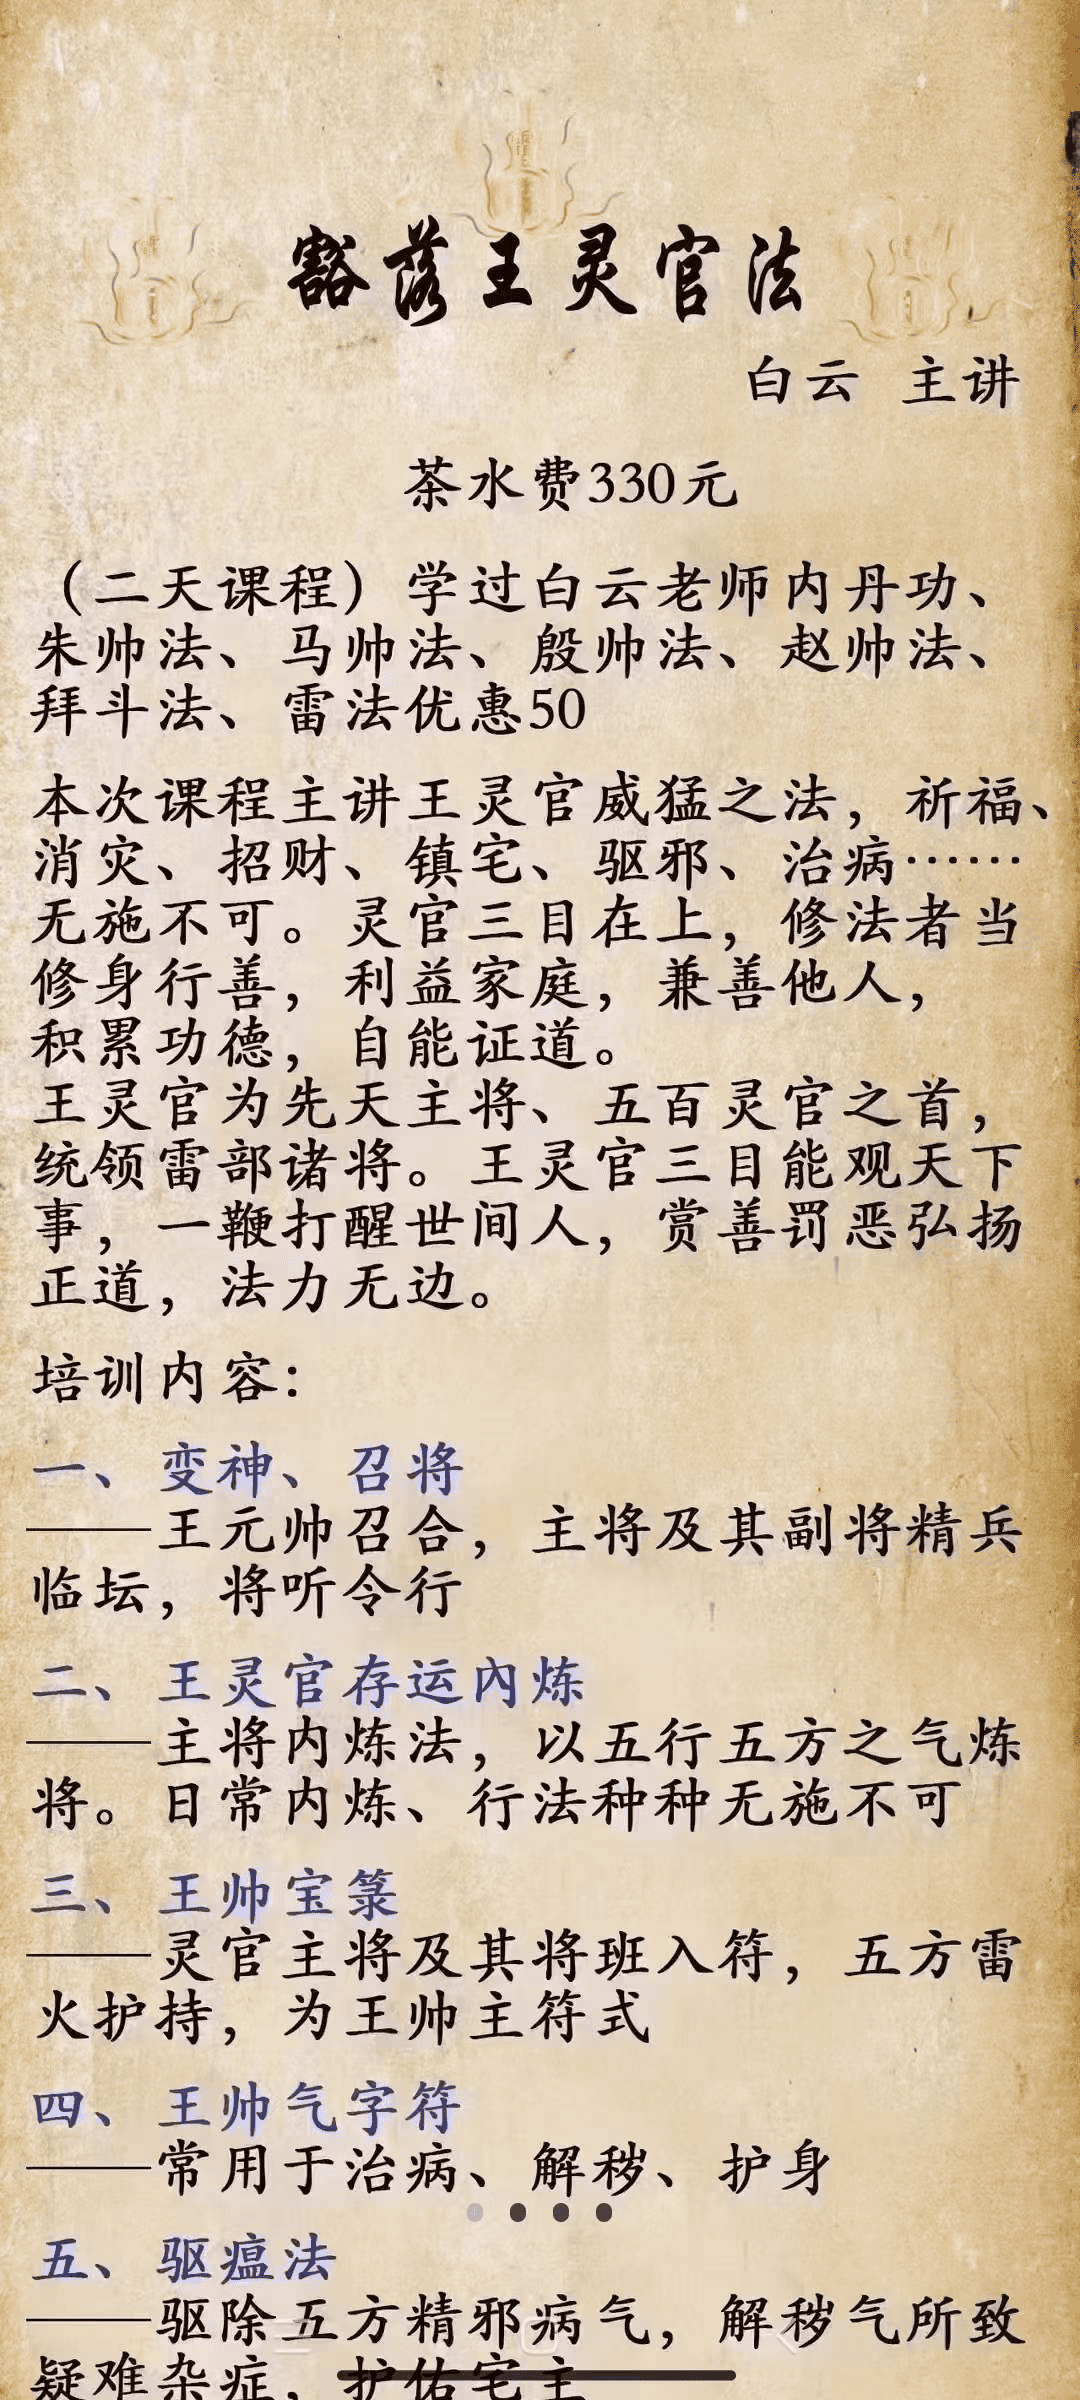 豁落王灵官法
白云 主讲
茶水费330元
（二天课程）学过白云老师内丹功、
朱帅法、马帅法、殷帅法、赵帅法、
拜斗法、雷法优惠50
本次课程主讲王灵官威猛之法，祈福、
消灾、招财、镇宅、驱邪、治病……
无施不可。灵官三目在上，修法者当
修身行善，利益家庭，兼善他人，
积累功德，自能证道。
王灵官为先天主将、五百灵官之首，
统领雷部诸将。王灵官三目能观天下
事，一鞭打醒世间人，赏善罚恶弘扬
正道，法力无边。
培训内容：
一、变神、召将
——王元帅召合，主将及其副将精兵
临坛，将听令行
二、王灵官存运內炼
——主将内炼法，以五行五方之气炼
将。日常内炼、行法种种无施不可
三、王帅宝箓
——灵官主将及其将班入符，五方雷
火护持，为王帅主符式
四、王帅气字符
——常用于治病、解秽、护身
五、驱瘟法
——驱除五方精邪病气，解秽气所致
疑难杂症，护佑宅主